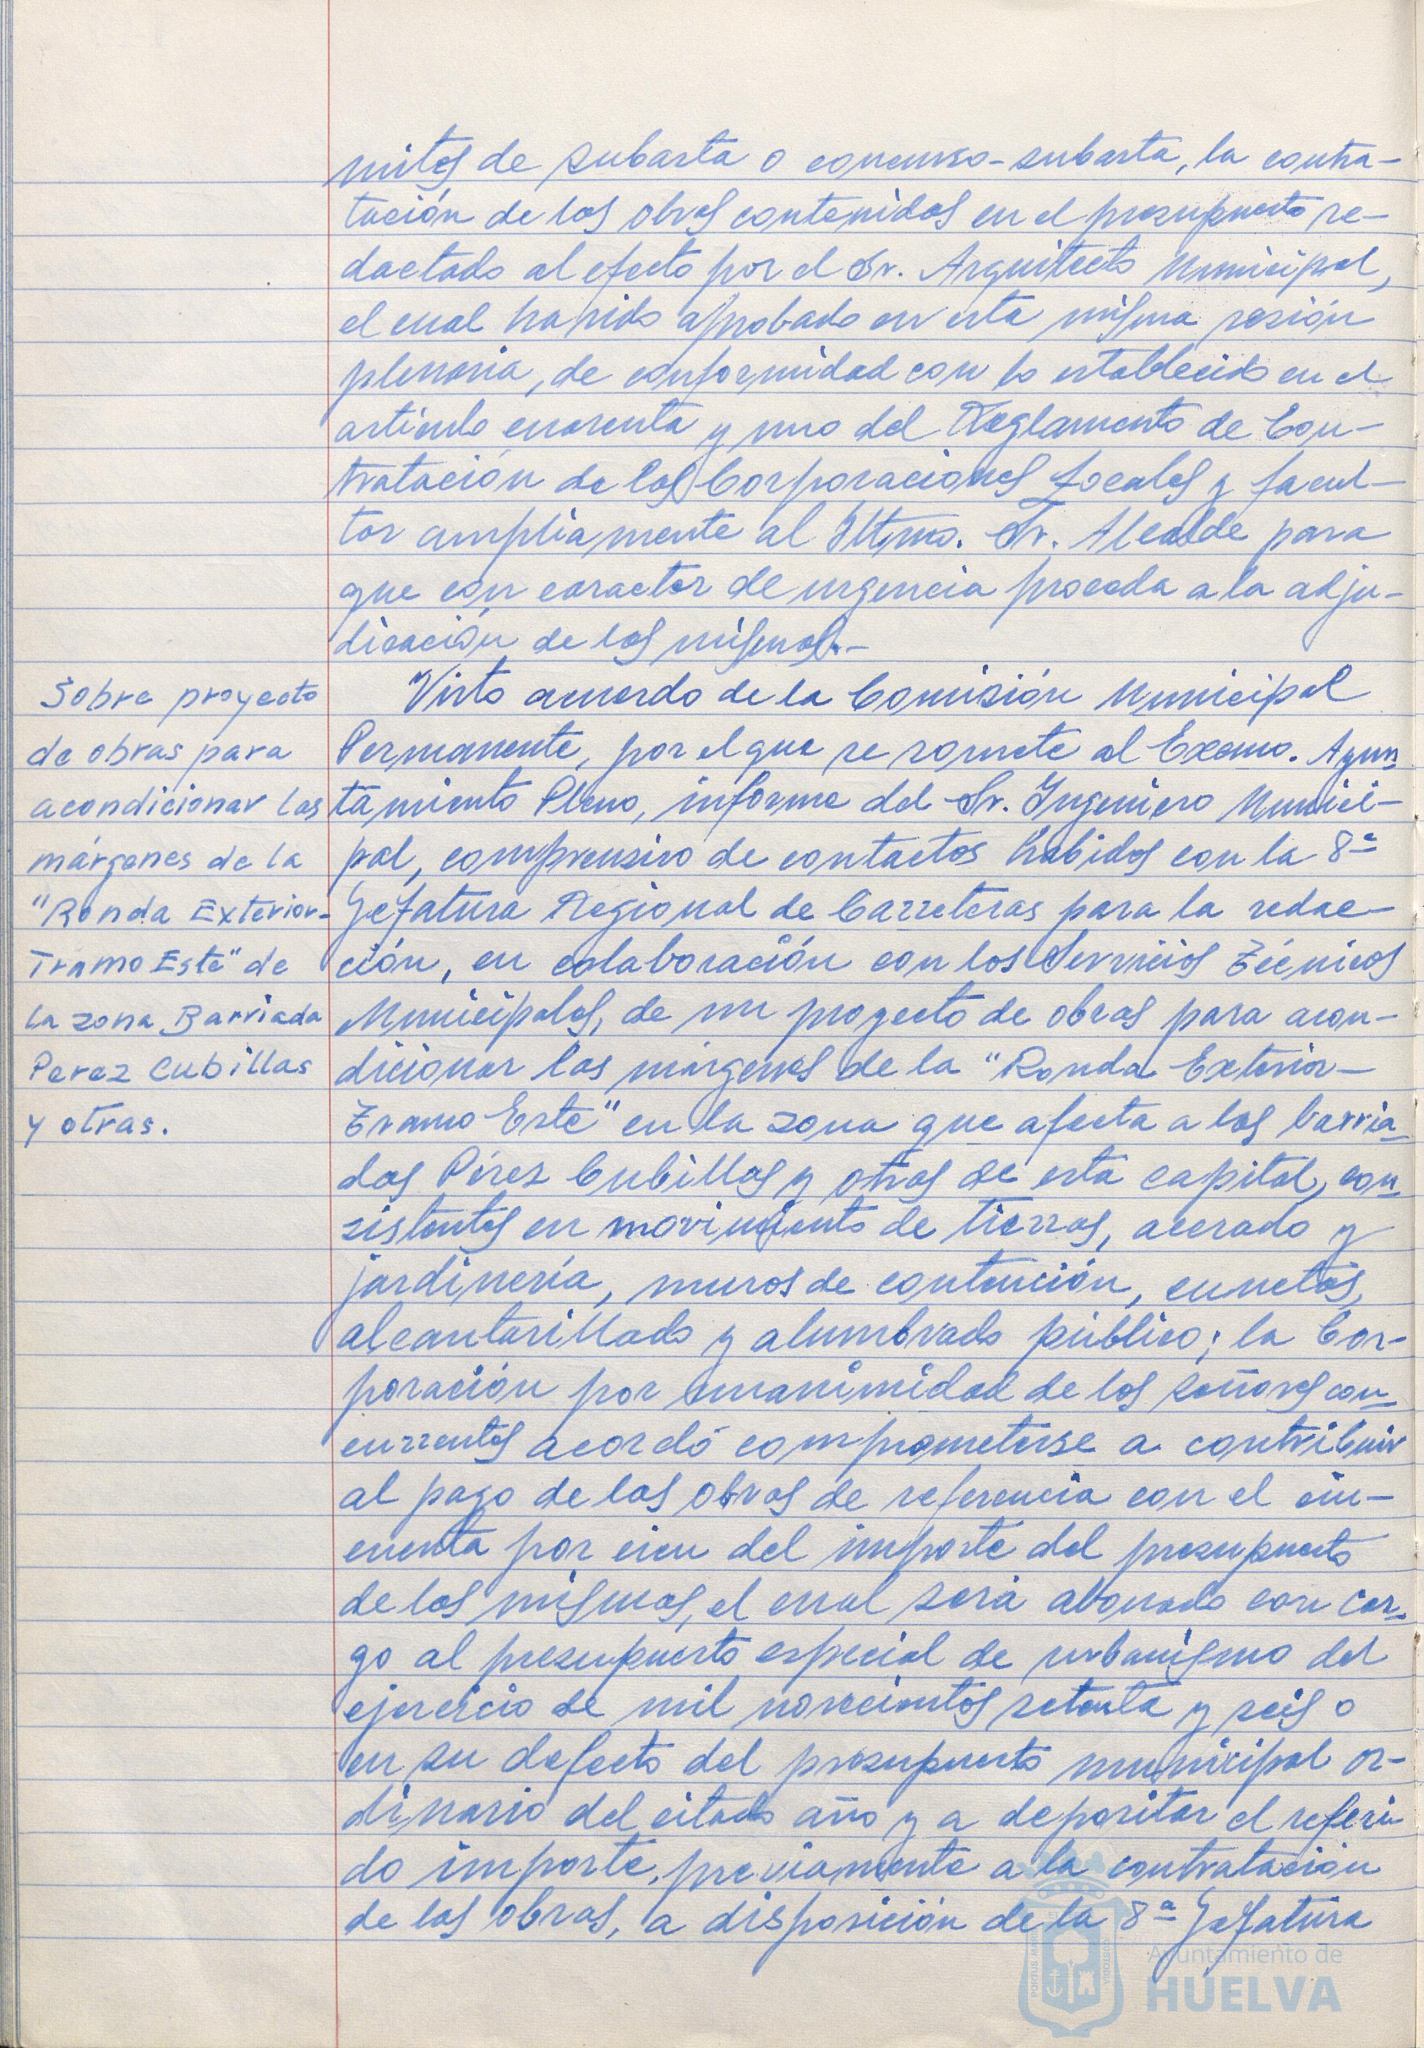 mites de subasta o concurso-subasta, la contra-
tación de las obras contenidas en el presupuesto re-
dactado al efecto por el Sr. Arquitecto Municipal,
el cual ha sido aprobado en esta misma sesión
plenaria, de conformidad con lo establecido en el
artículo cuarenta y uno del Reglamento de Con-
tratación de las Corporaciones Locales y facul-
tar ampliamente al Iltmo. Sr. Alcalde para
que con caracter de urgencia proceda a la adju-
dicación de las mismas.-
Sobre proyecto
de obras para
acondicionar las
márgenes de la
"Ronda Exterior-
Tramo Este" de
la zona Barriada
Perez Cubillas
y otras.
Visto acuerdo de la Comisión Municipal
Permanente, por el que se somete al Excmo. Ayun-
tamiento Pleno, informe del Sr. Ingeniero Munici-
pal, comprensivo de contactos habidos con la 8ª
Jefatura Regional de Carreteras para la redac-
ción, en colaboración con los Servicios Técnicos
Municipales, de un proyecto de obras para acon-
dicionar las márgenes de la "Ronda Exterior-
Tramo Este" en la zona que afecta a las barria-
das Pérez Cubillas y otras de esta capital, con-
sistentes en movimiento de tierras, acerado y
jardinería, muros de contención, cunetas,
alcantarillado y alumbrado público; la Cor-
poración por unanimidad de los señores con-
currentes acordó comprometerse a contribuir
al pago de las obras de referencia con el cin-
cuenta por cien del importe del presupuesto
de las mismas, el cual será abonado con car-
go al presupuesto especial de urbanismo del
ejercicio de mil novecientos setenta y seis o
en su defecto del presupuesto municipal or-
dinario del citado año y a depositar el referi
do importe, previamente a la contratación
de las obras, a disposición de la 8ª Jefatura
Ayuntamiento de
HUELVA